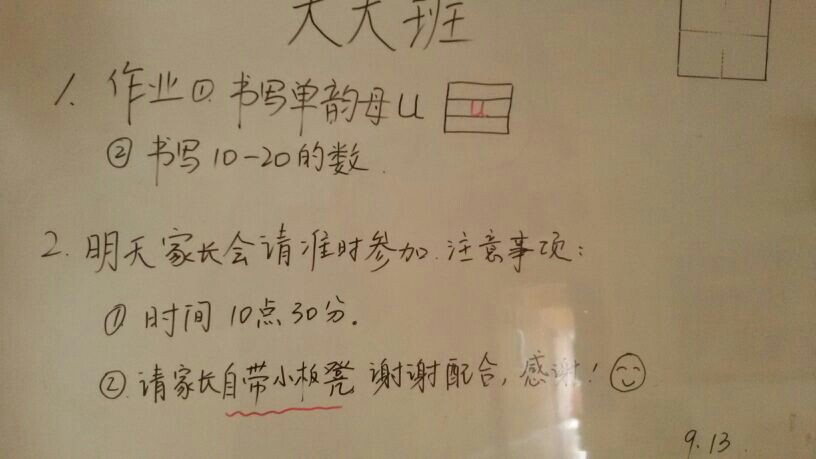 大大班
1. 作业① 书写单韵母u u
② 书写10-20的数.
2. 明天家长会请准时参加.注意事项:
① 时间10点30分.
②.请家长自带小板凳 谢谢配合,感谢!
9.13.